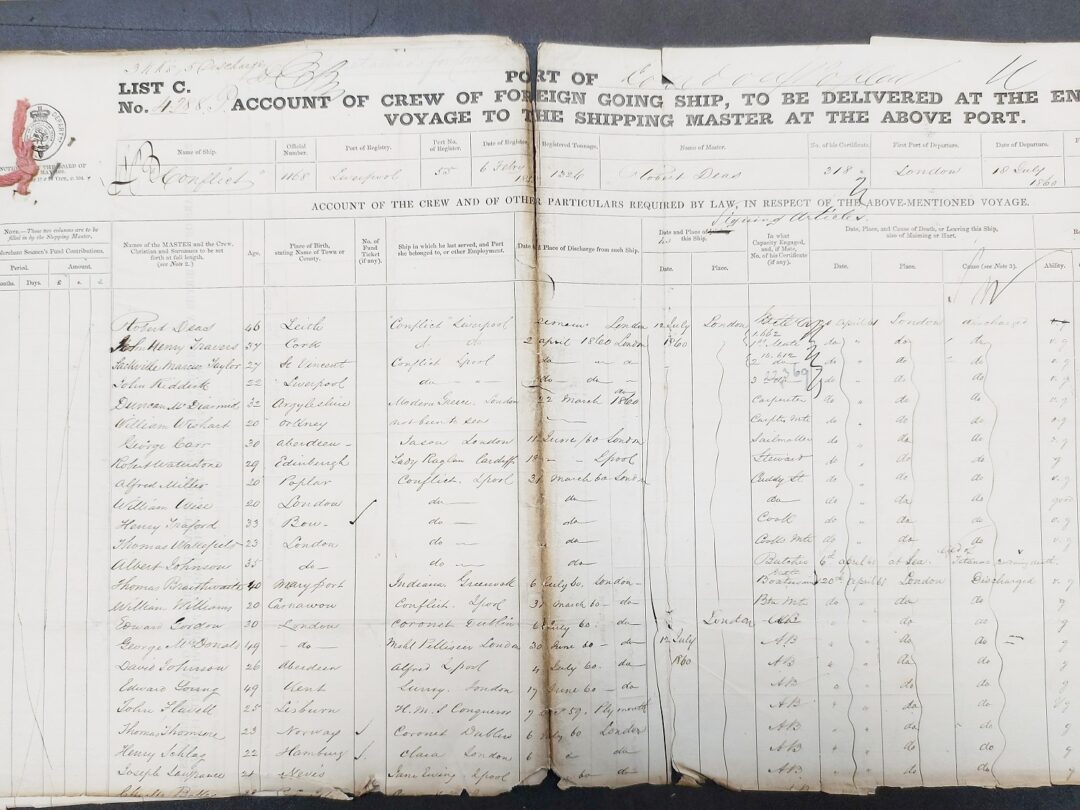 LIST C.
PORT OF
No. 4288
ACCOUNT OF CREW OF FOREIGN GOING SHIP, TO BE DELIVERED AT THE EN
VOYAGE TO THE SHIPPING MASTER AT THE ABOVE PORT.
Name of Ship. Official Number. Port of Registry. Port No. of Register. Date of Register Registered Tonnage. Name of Master. No. of his Certificate. First Port of Departure. Date of Departure.
"Conflict" Liverpool 55 6 1326 Robert Deas 318 London 18 July 1860
ACCOUNT OF THE CREW AND OF OTHER PARTICULARS REQUIRED BY LAW, IN RESPECT OF THE ABOVE-MENTIONED VOYAGE.
Signing Articles.
NOTE.—These two columns are to be filled in by the Shipping Master.
Merchant Seamen's Fund Contributions.
Period. Amount.
Months. Days. £ s. d.
Names of the MASTER and the Crew, Christian and Surnames to be set forth at full length. (see Note 2.)
Age.
Place of Birth, stating Name of Town or County.
No. of Fund Ticket (if any).
Ship in which he last served, and Port she belonged to, or other Employment.
Date & Place of Discharge from such Ship.
Date and Place of this Ship.
Date. Place.
In what Capacity Engaged, and, if Mate, No. of his Certificate (if any).
Date, Place, and Cause of Death, or Leaving this Ship, also of Maiming or Hurt.
Date. Place. Cause (see Note 3).
Ability.
Robert Deas 46 Leith "Conflict" Liverpool remain London 12 July London April 61 London discharged
John Henry Travers 37 Cork do do 2 April 1860 London 1860 1st Mate do do do v.g
Sackville Marcus Taylor 27 St Vincent Conflict Lpool do do 2 do do do do v.g
John Riddick 22 Liverpool do do do 3 do do do v.g
Duncan McDiarmid 32 Argyleshire Modern Greece London 22 March 1860 Carpenter do do do v.g
William Wishart 20 Orkney not been to sea Carptr Mte do do do v.g
George Carr 30 Aberdeen Jason London 11 June /60 London Sailmaker do do do v.g
Robert Waterstone 29 Edinburgh Lady Raglan Cardiff Lpool Steward do do do g
Alfred Miller 20 Poplar Conflict. Lpool 31 March 60 London Cuddy St. do do do v.g
William Wise 20 London do do do do do do good
Henry Traford 33 Bow do do Cook do do do v.g
Thomas Wakefield 23 London do do Cooks Mte do do do v.g
Albert Johnson 35 do do do Butcher 6th April 61 at Sea. died of Tetanus
Thomas Braithwaite 40 Maryport Indiana Greenock 6 July 60. London Boatswain 20th April 61 London Discharged v.g
William Williams 20 Carnarvon Conflict. Lpool 31 March 60 do Btn Mte do do do g
Edward Gordon 30 London Coronet Dublin 6 July 60. do London AB do do do g
George McDonald 49 do Mshl Pellissier London 30 June 60 do 12 July AB do do g
David Johnson 26 Aberdeen Alfred Lpool 4 July 60. do 1860 AB do do g
Edward Goring 49 Kent Surrey. London 17 June 60 do AB do do g
John Flavell 25 Lisburn H.M.S Conqueror 9 Oct 59. Plymouth AB do do v.g
Thomas Thomson 23 Norway Coronet Dublin 6 July 60 London AB do do g
Henry Schlas 22 Hamburg Clara London 6 do AB do do g
Joseph Lawrance 21 Nevis Jane Ewing Lpool 60 do AB do do g